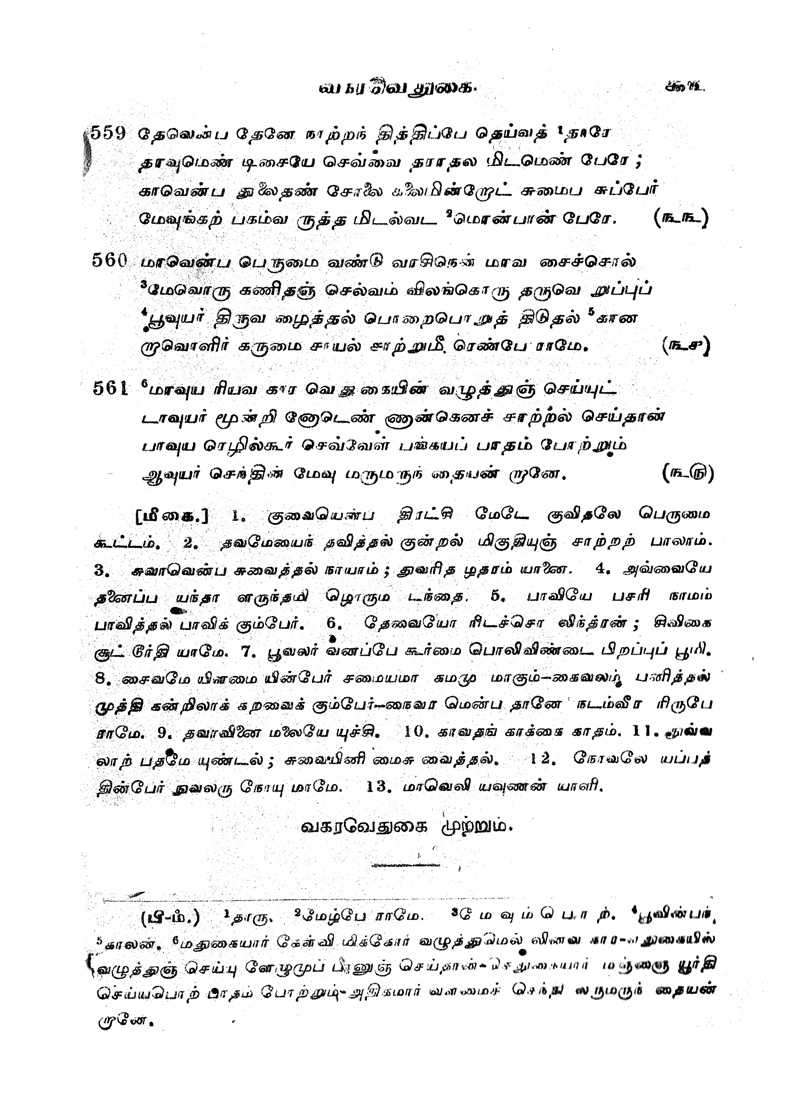 வகரவெதுகை.
559 தேவென்ப தேனே நாற்றந் தித்திப்பே தெய்வத் ¹தாரே
தாவுமெண் டிசையே செவ்வை தாராதல மிடமெண் பேரே ;
காவென்ப துலைதண் சோலை கலைமின்றோட் சுமைப சுப்பேர்
மேவுங்கற் பகம்வ ருத்த மிடல்வட ²மொன்பான் பேரே. (௩௩)
560 மாவென்ப பெருமை வண்டு வாசிநென் மாவ சைச்சொல்
³மேவொரு கணிதஞ் செல்வம் விலங்கொரு தருவெ றுப்புப்
⁴பூவுயர் திருவ ழைத்தல் பொறைபொறுத் திடுதல் ⁵கான
றூவொளிர் கருமை சாயல் சாற்றுமீ ரெண்பே ராமே. (௩௪)
561 ⁶மாவுய ரியவ கார வெதுகையின் வழுத்துஞ் செய்யுட்
டாவுயர் மூன்றி னோடெண் ணான்கெனச் சாற்றல் செய்தான்
பாவுய ரெழில்கூர் செவ்வேள் பங்கயப் பாதம் போற்றும்
ஆவுயர் செந்தின் மேவு மருமருந் தையண் றானே. (௩௫)
[மீகை.] 1. குவையென்ப திரட்சி மேடே குவிதலே பெருமை
கூட்டம். 2. தவமேயைந் தவித்தல் குன்றல் மிகுதியுஞ் சாற்றற் பாலாம்.
3. சுவாவென்ப சுவைத்தல் நாயாம் ; துவரித ழதரம் யானை. 4. அவ்வையே
தனைப்ப யந்தா ளருந்தமி ழொரும டந்தை. 5. பாவியே பசரி நாமம்
பாவித்தல் பாவிக் கும்பேர். 6. தேவையோ ரிடச்சொ லிந்த்ரன் ; சிவிகை
சூட் டூர்தி யாமே. 7. பூவலர் வனப்பே கூர்மை பொலிவிண்டை பிறப்புப் பூமி.
8. சைவமே யிளமை யின்பேர் சமையமா கமமு மாகும்-கைவலம் பனித்தல்
முத்தி கன்றிலாக் கறவைக் கும்பேர்-நைவர மென்ப தானே நடம்வீர ரிருபே
ராமே. 9. தவாவினை மலையே யுச்சி. 10. காவதங் காக்கை காதம். 11. துவ்வ
லாற் பதமே யுண்டல் ; சுவையினி மைசு வைத்தல். 12. நோவலே யப்பத்
தின்பேர் நுவலரு நோயு மாமே. 13. மாவெலி யவுணன் யாளி.
வகரவேதுகை முற்றும்.
(பி-ம்.) ¹தாரு. ²மேழ்பே ராமே. ³மேவும்பொற். ⁴பூவின்பந்,
⁵காலன். ⁶மதுகையார் கேள்வி மிக்கோர் வழுத்துமெல் லினவ கார-எதுகையிஸ்
வழுத்துஞ் செய்யு ளேழுமுப் பானுஞ் செய்தான்-செதுகையார் மஞ்ஞை யூர்தி
செய்யபொற் பாதம் போற்றும்-அதிகமார் வளமைச் செந்து ஸருமருந் தையண்
றானே.